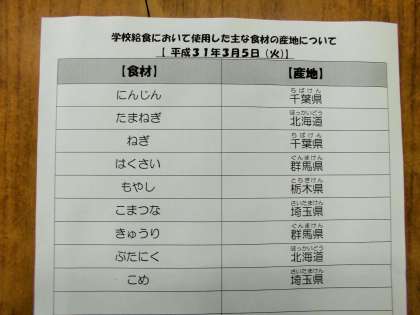 学校給食において使用した主な食材の産地について
【 平成31年3月5日（火）】
【食材】 【産地】
にんじん 千葉県
たまねぎ 北海道
ねぎ 千葉県
はくさい 群馬県
もやし 栃木県
こまつな 埼玉県
きゅうり 群馬県
ぶたにく 北海道
こめ 埼玉県